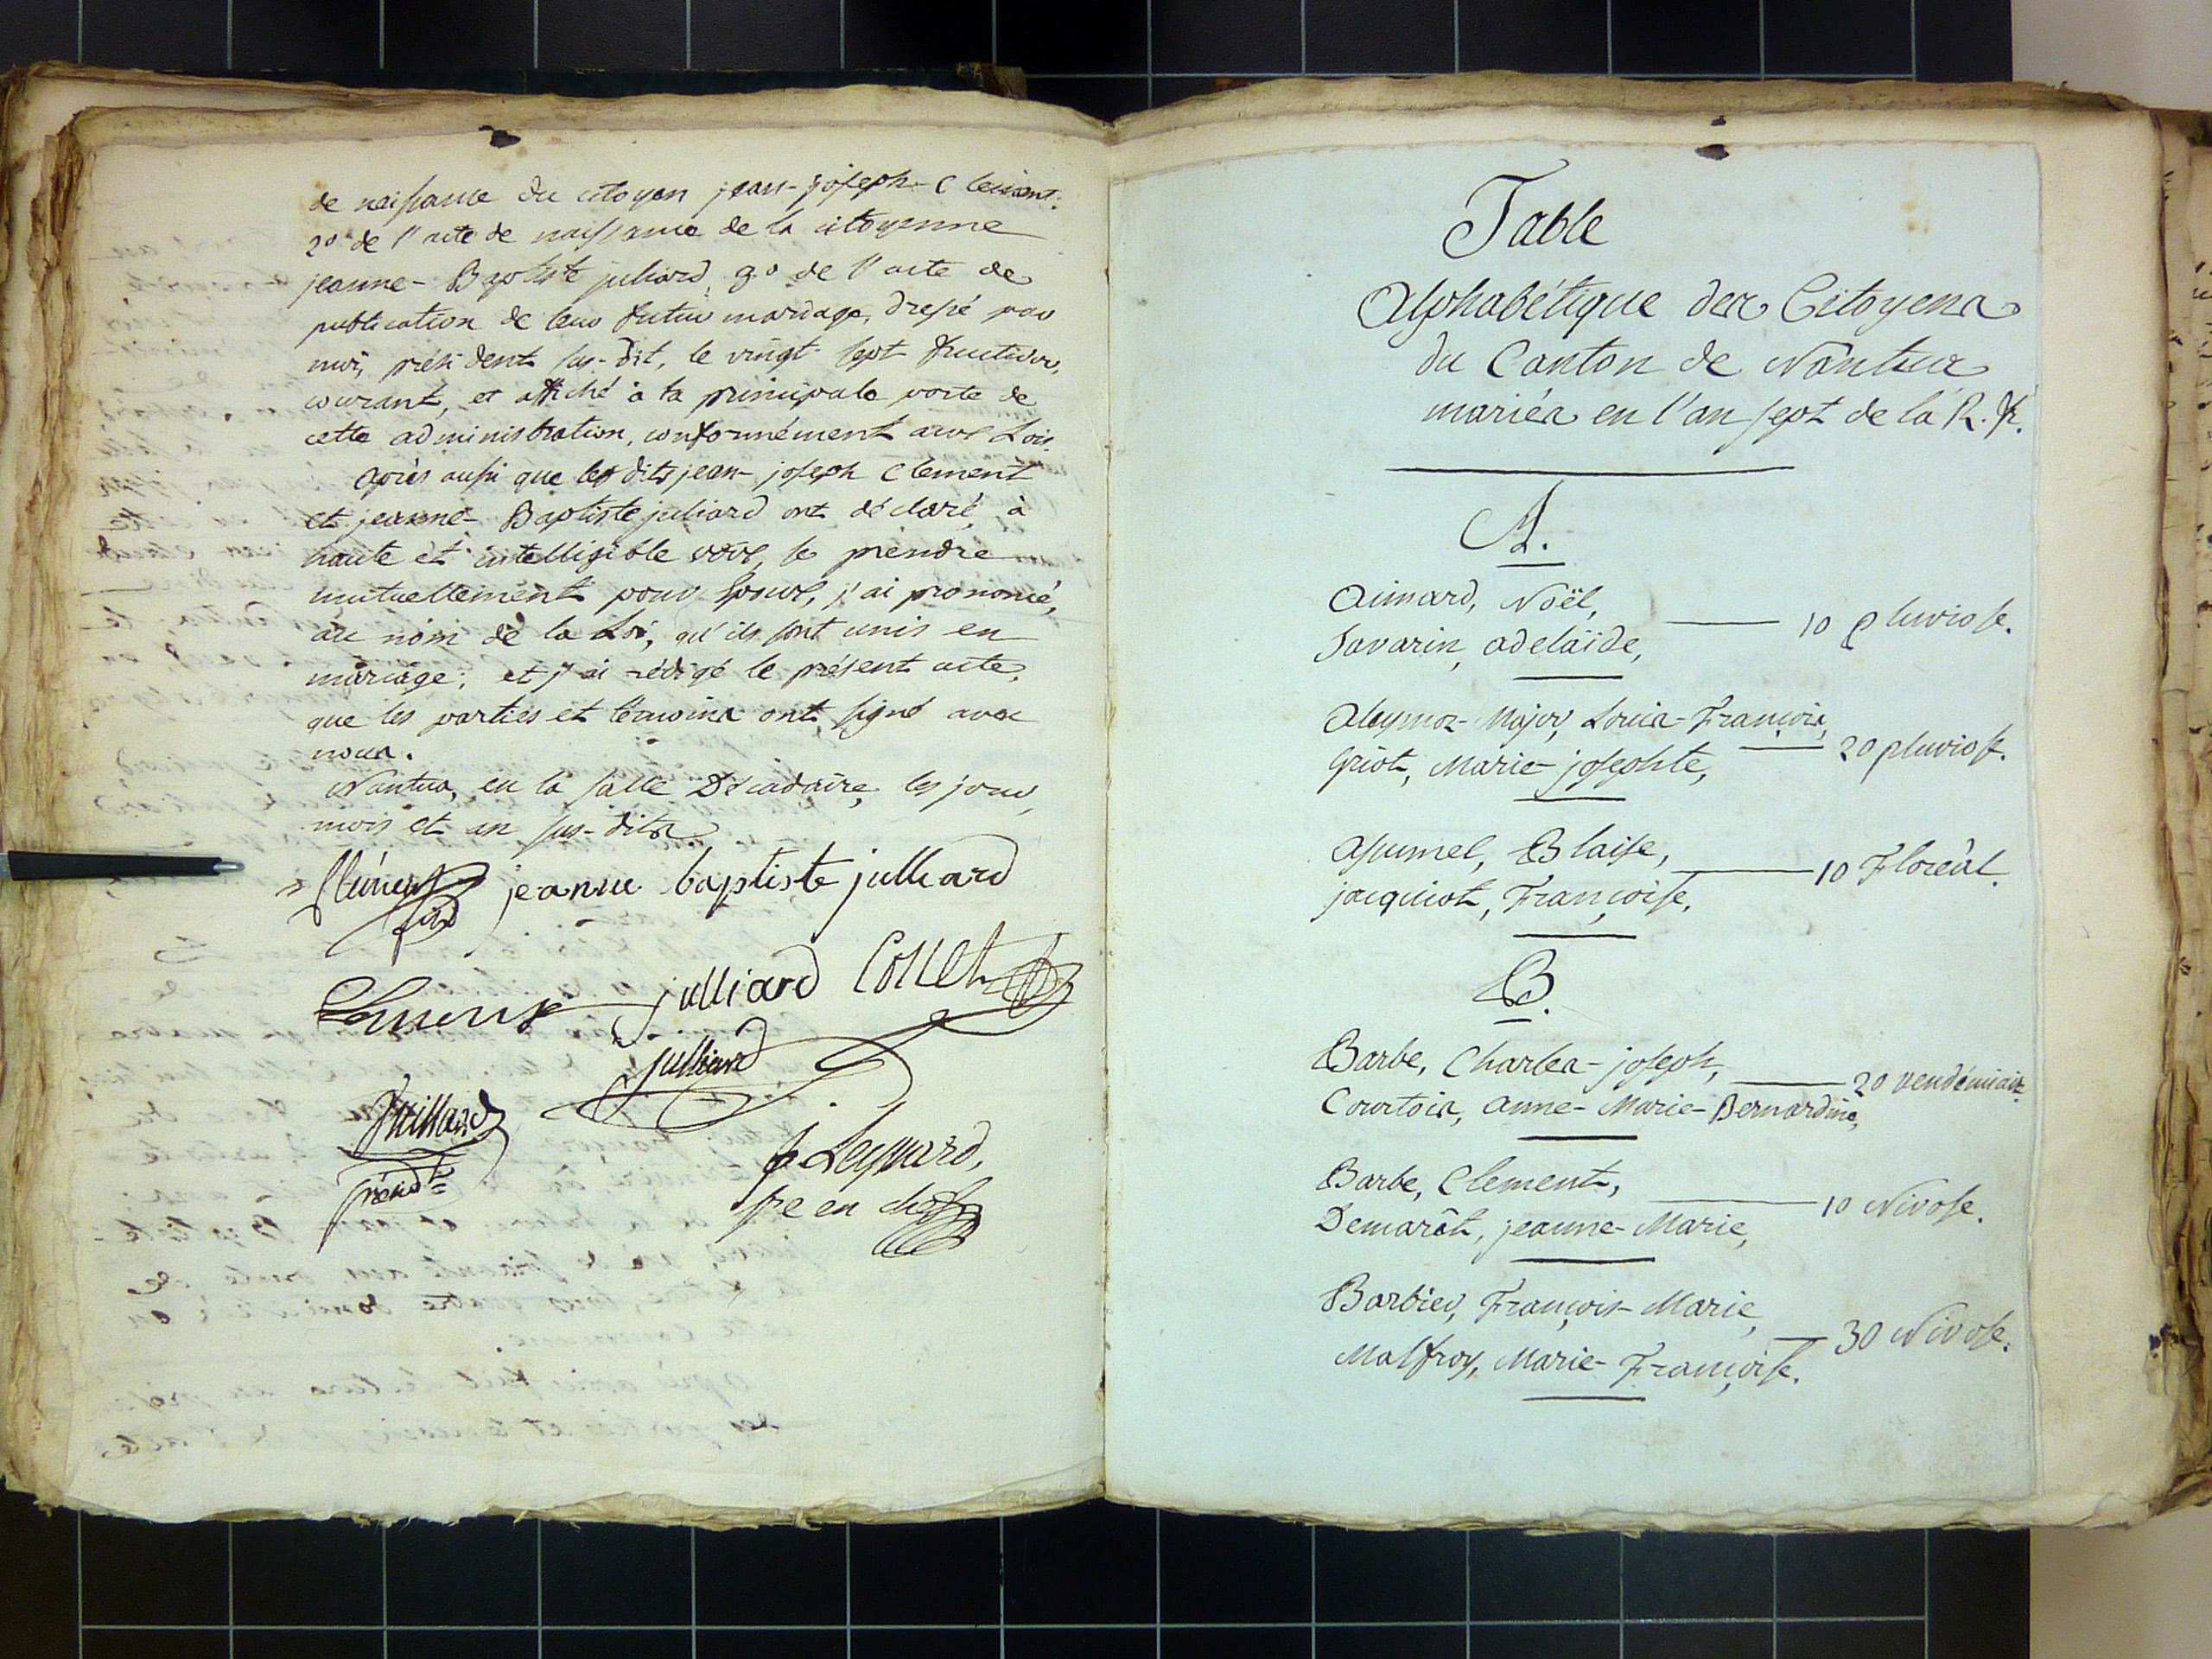 de naissance du citoyen jean-joseph Clement.
2º de l'acte de naissance de la citoyenne
jeanne-Baptiste julliard, 3º de l'acte de
publication de leur futur mariage, dressé par
moi, président sus-dit, le vingt-sept fructidor,
courant, et affiché à la principale porte de
cette administration, conformément aux Lois.
Après aussi que lesdits jean-joseph Clement
et jeanne-Baptiste juliard ont déclaré, à
haute et intelligible voix, se prendre
mutuellement pour Epoux, j'ai prononcé,
au nom de la Loi, qu'ils sont unis en
mariage; et j'ai rédigé le présent acte,
que les parties et témoins ont signé avec
nous.
Nantua, en la salle Décadaire, les jour,
mois et an sus-dits
jeanne baptiste julliard
julliard Collet
julliard
juilliard
présidt
Leymard,
sre en chef
Table
Alphabétique des Citoyens
du Canton de Nantua
mariés en l'an sept de la R. fr.
A.
Aimard, Noël,
Savarin, adelaïde, 10 pluviose.
Aleymoz-Major, Louis-François,
Griot, Marie-josephte, 20 pluviose.
Assumel, Blaise,
jacquiot, Françoise, 10 Floréal.
B.
Barbe, Charles-joseph,
Courtois, anne-Marie-Bernardine, 20 vendémiaire
Barbe, Clement,
Demarât, jeanne-Marie, 10 Nivose.
Barbier, François-Marie,
Malfroy, Marie-Françoise. 30 Nivose.